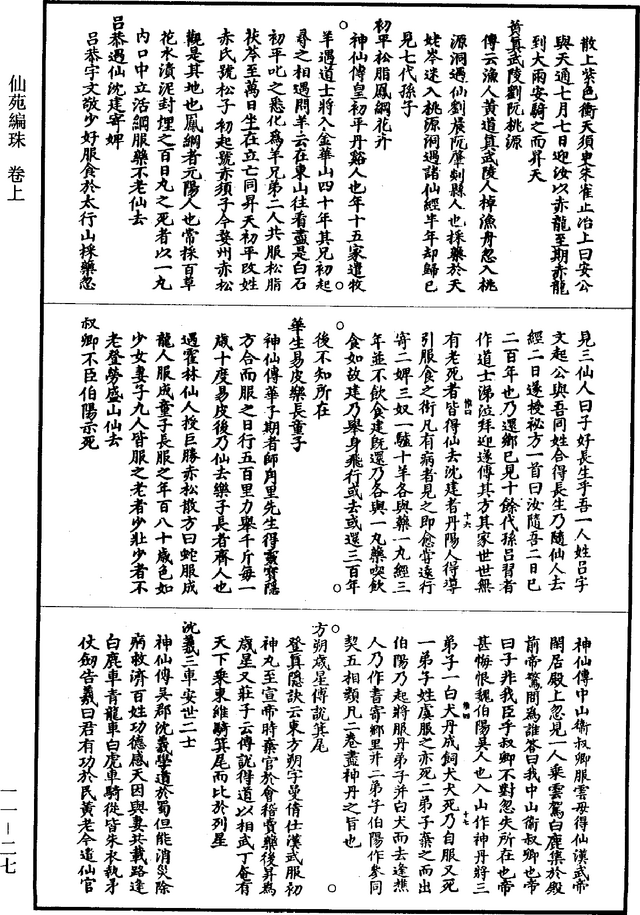 仙苑編珠 卷上
散上紫色衝天須臾朱雀止冶上曰安公
與天通七月七日迎汝以赤龍至期赤龍
到大雨安騎之而昇天
黃真武陵劉阮桃源
傳云漁人黃道真武陵人棹漁舟忽入桃
源洞遇仙劉晨阮肇剡縣人也採藥於天
姥岑迷入桃源洞遇諸仙經半年却歸已
見七代孫子
初平松脂鳳綱花卉
神仙傳皇初平丹谿人也年十五家遣牧
羊遇道士將入金華山四十年其兄初起
尋之相遇問羊云在東山往看盡是白石
初平叱之悉化為羊兄弟二人共服松脂
茯苓至萬日坐在立亡同昇天初平改姓
赤氏號松子初起號赤須子今婺州赤松
觀是其地也鳳綱者元陽人也常採百草
花水漬泥封埋之百日九之死者以一丸
內口中立活綱服藥不老仙去
呂恭遇仙沈建寄婢
呂恭字文敬少好服食於太行山採藥忽
見三仙人曰子好長生乎吾一人姓呂字
文起公與吾同姓合得長生乃隨仙人去
經二日遂授祕方一首曰汝隨吾二日已
二百年也乃還鄉已見十餘代孫呂習者
作道士涕泣拜迎遂傳其方其家世世無
有老死者皆得仙去沈建者丹陽人得導
引服食之術凡有病者見之即愈甞遠行
寄二婢三奴一驢十羊各與藥一丸經三
年並不飲食建旣還乃各與一丸藥喫飲
食如故建乃舉身飛行或去或還三百年
後不知所在
華生易皮樂長童子
神仙傳華子期者師角里先生得靈寶隱
方合而服之日行五百里力舉千斤每一
歲十度易皮後乃仙去樂子長者齊人也
遇霍林仙人授巨勝赤松散方曰蛇服成
龍人服成童子長服之年百八十歲色如
少女妻子九人皆服之老者少壯少者不
老登勞盛山仙去
叔卿不臣伯陽示死
神仙傳中山衛叔卿服雲母得仙漢武帝
閑居殿上忽見一人乘雲駕白鹿集於殿
前帝驚問為誰答曰我中山衛叔卿也帝
曰子非我臣乎叔卿不對忽失所在也帝
甚悔恨魏伯陽吳人也入山作神丹將三
弟子一白犬丹成飼犬犬死乃自服又死
一弟子姓虞服之亦死二弟子棄之而出
伯陽乃起將服丹弟子并白犬而去逢樵
人乃作書寄鄉里并二弟子伯陽作參同
契五相類凡二卷盡神丹之旨也
方朔歲星傅說箕尾
登真隱訣云東方朔字曼倩仕漢武服初
神丸至宣帝時棄官於會稽賣藥後昇為
歲星又莊子云傅說得道以相武丁奄有
天下乘東維騎箕尾而比於列星
沈羲三車安世二士
神仙傳吳郡沈羲學道於蜀但能消災除
病救濟百姓功德感天因與妻共載路逢
白鹿車青龍車白虎車騎從皆朱衣執矛
仗劒告羲曰君有功於民黃老今遣仙官
一一－二七